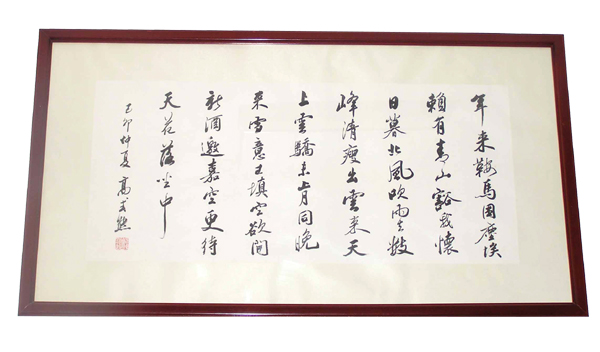 年来鞍馬困塵埃
賴有青山豁我懷
日暮北風吹雨去數
峰清瘦出雲来天
上雲驕未肯同晚
来雪意已填空欲開
新酒邀嘉客更待
天花落坐中
己卯仲夏 高式熊